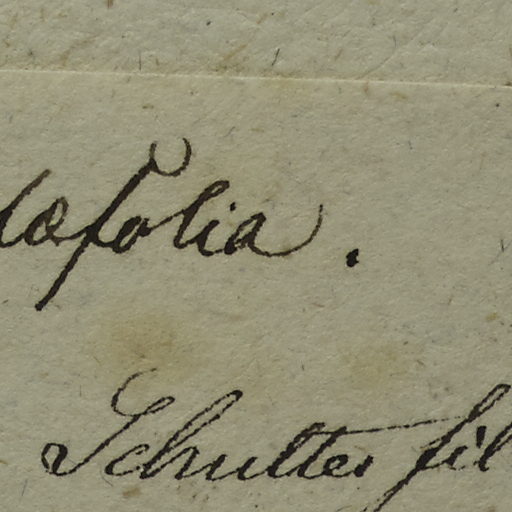 læfolia.
Schultes fil